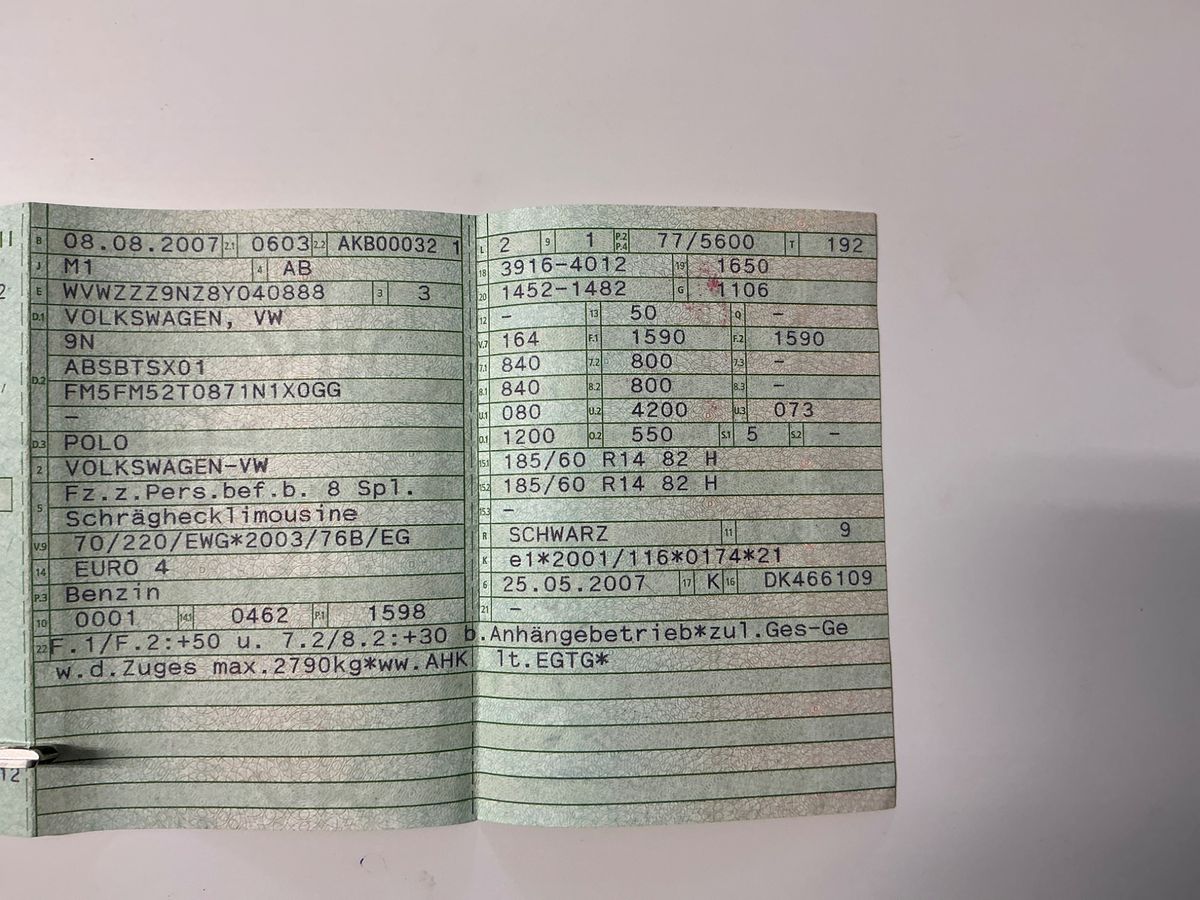 B 08.08.2007 2.1 0603 2.2 AKB00032 1
J M1 4 AB
E WVWZZZ9NZ8Y040888 3 3
D.1 VOLKSWAGEN, VW
9N
D.2 ABSBTSX01
FM5FM52T0871N1X0GG
–
D.3 POLO
2 VOLKSWAGEN-VW
5 Fz.z.Pers.bef.b. 8 Spl.
Schräghecklimousine
V.9 70/220/EWG*2003/76B/EG
14 EURO 4
P.3 Benzin
10 0001 14.1 0462 P.1 1598
L 2 9 1 P.2 P.4 77/5600 T 192
18 3916-4012 19 1650
20 1452-1482 G 1106
12 – 13 50 Q –
V.7 164 F.1 1590 F.2 1590
7.1 840 7.2 800 7.3 –
8.1 840 8.2 800 8.3 –
U.1 080 U.2 4200 U.3 073
O.1 1200 O.2 550 S.1 5 S.2 –
15.1 185/60 R14 82 H
15.2 185/60 R14 82 H
15.3 –
R SCHWARZ 11 9
K e1*2001/116*0174*21
6 25.05.2007 17 K 16 DK466109
21 –
22 F.1/F.2:+50 u. 7.2/8.2:+30 b.Anhängebetrieb*zul.Ges-Ge
w.d.Zuges max.2790kg*ww.AHK lt.EGTG*
12